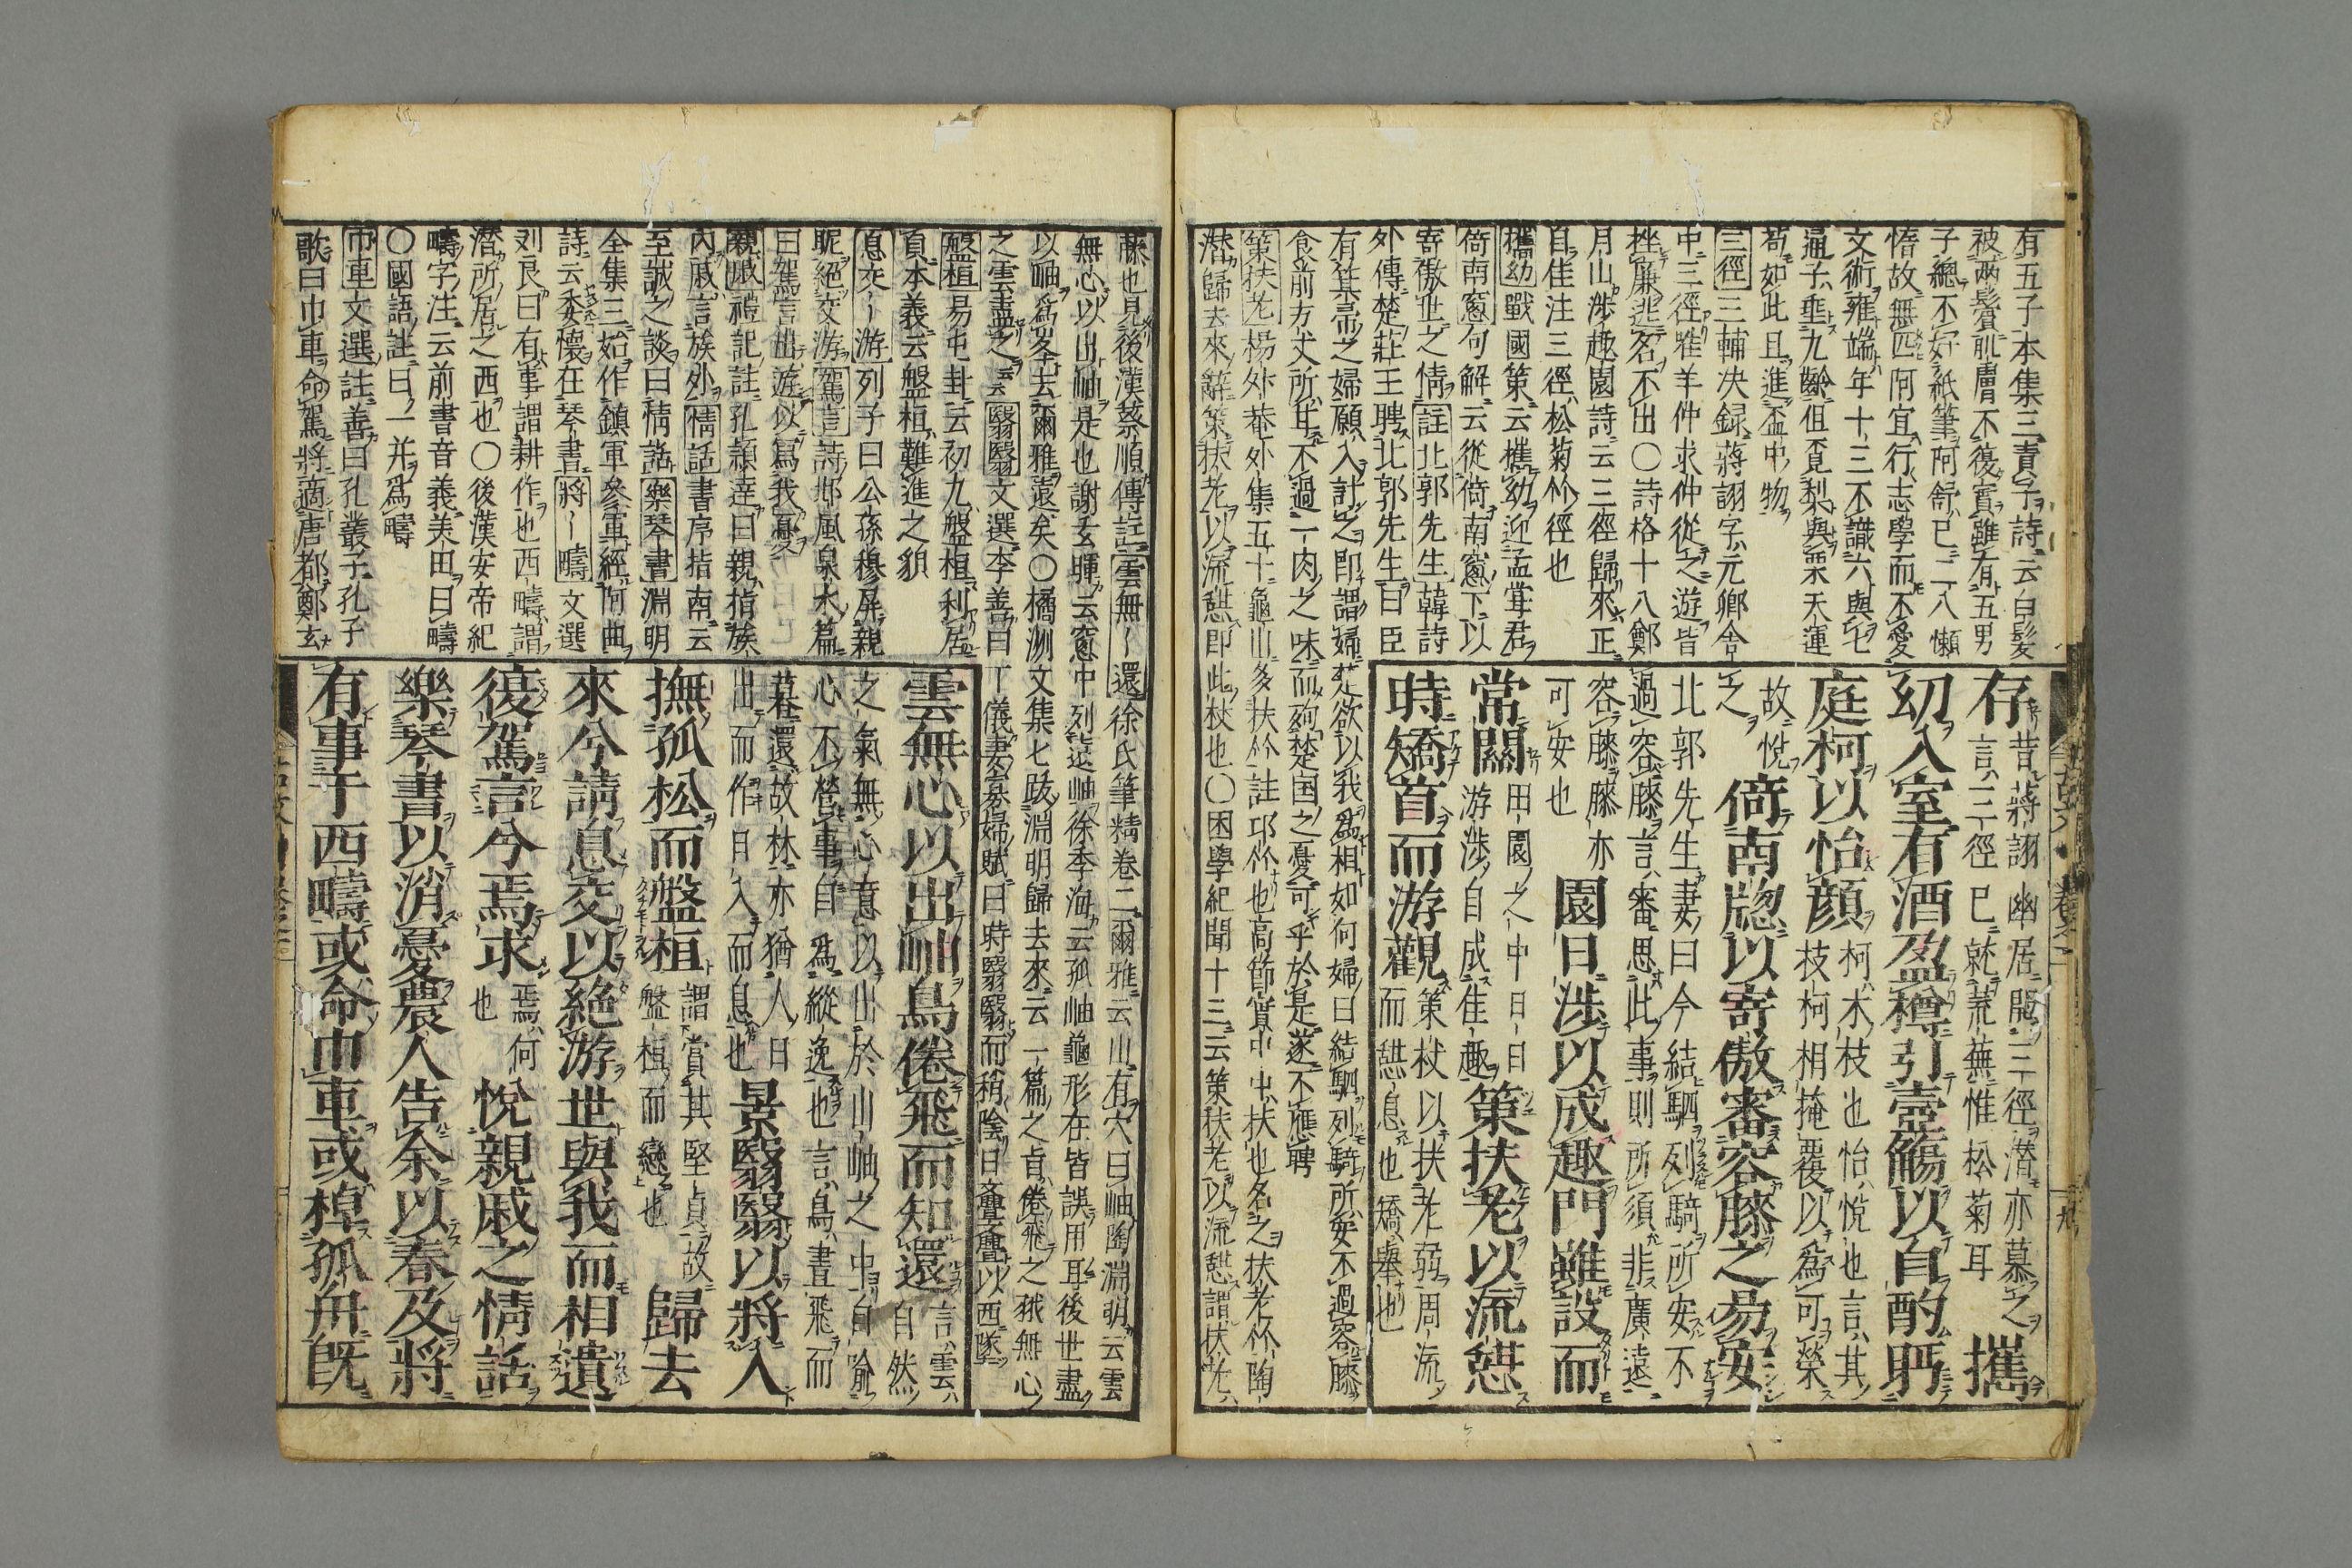 有五子本集三責子詩云白髪
被兩鬢肌膚不復實雖有五男
子總不好紙筆阿舒已二八懶
惰故無匹阿宜行志學而不愛
文術雍端年十三不識六與七
通子垂九齡但覓梨與栗天運
苟如此且進盃中物
三徑三輔决録蔣詡字元卿舎
中三徑唯羊仲求仲從之遊皆
挫廉逃名不出〇詩格十八鄭
月山渉趣園詩云三徑歸來正
自佳注三徑松菊竹徑也
攜幼戰國策云攜幼迎孟甞君
倚南窓句解云從倚南窓下以
寄傲世之情註北郭先生韓詩
外傳楚莊王聘北郭先生曰臣
有箕帚之婦願入計之即謂婦楚欲以我爲相如何婦曰結駟列騎所安不過容膝
食前方丈所甘不過一肉之味而殉楚国之憂可乎於是遂不應聘
策扶老楊外菴外集五十龜山多扶竹註邛竹也高節實中中扶也名之扶老竹陶
潜歸去來辭策扶老以流憩即此杖也〇困學紀聞十三云策扶老以流憩謂扶老
存昔蔣詡幽居開三徑潜亦慕之
言三徑已就荒蕪惟松菊耳
攜
幼入室有酒盈樽引壺觴以自酌眄
庭柯以怡顔柯木枝也怡悅也言其
枝柯相掩覆以爲可榮
故悅
之
倚南牕以寄傲審容膝之易安
北郭先生妻曰今結駟列騎所安不
過容膝言審思此事則所須非廣遠
容膝膝亦
可安也
園日渉以成趣門雖設而
常關田園之中日日
游渉自成佳趣
策扶老以流憩
時矯首而游觀策杖以扶老弱周流
而憩息也矯舉也
藤也見後漢蔡順傳註雲無〜還徐氏筆精卷二爾雅云山有穴曰岫陶淵明云雲
無心以出岫是也謝玄暉云窓中列遠岫徐季海云孤岫龜形在皆誤用耳後世盡
以岫爲峯去爾雅遠矣〇橘洲文集七跋淵明歸去來云一篇之貞倦飛之狘無心
之雲盡之云翳翳文選李善曰丁儀妻寡婦賦曰時翳翳而稍陰日亹亹以西墜
盤桓易屯卦云初九盤桓利居
貞本義云盤桓難進之貌
息交〜游列子曰公孫穆屏親
昵絕交游駕言詩邶風泉水篇
曰駕言出遊以寫我憂
親戚禮記註孔穎達曰親指族
內戚言族外情話書序指南云
至誠之談曰情話樂琴書淵明
全集三始作鎮軍參軍經阿曲
詩云委懷在琴書將〜疇文選
刘良曰有事謂耕作也西疇謂
潜所居之西也〇後漢安帝紀
疇字注云前書音義美田曰疇
〇國語註曰一井爲疇
巾車文選註善曰孔叢子孔子
歌曰巾車命駕將適唐都鄭玄
雲無心以出岫鳥倦飛而知還言雲
自然
之氣無心意以出於山岫之中自喻
心不營事自爲縱逸也言鳥晝飛而
暮還故林亦猶人日
出而作日入而息也
景翳翳以將入
撫孤松而盤桓謂賞其堅貞故
盤桓而戀也
歸去
來兮請息交以絕游世與我而相遺
復駕言兮焉求焉何
也
悅親戚之情話
樂琴書以消憂農人告余以春及將
有事于西疇或命巾車或棹孤舟既